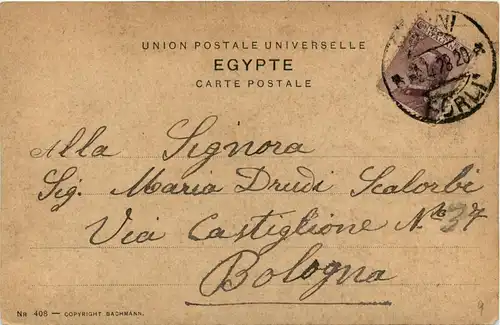 UNION POSTALE UNIVERSELLE
EGYPTE
CARTE POSTALE
FORLI
Alla Signora
Sig. Maria Drudi Scalorbi
Via Castiglione No 37
Bologna
No 408 — COPYRIGHT BACHMANN.
9